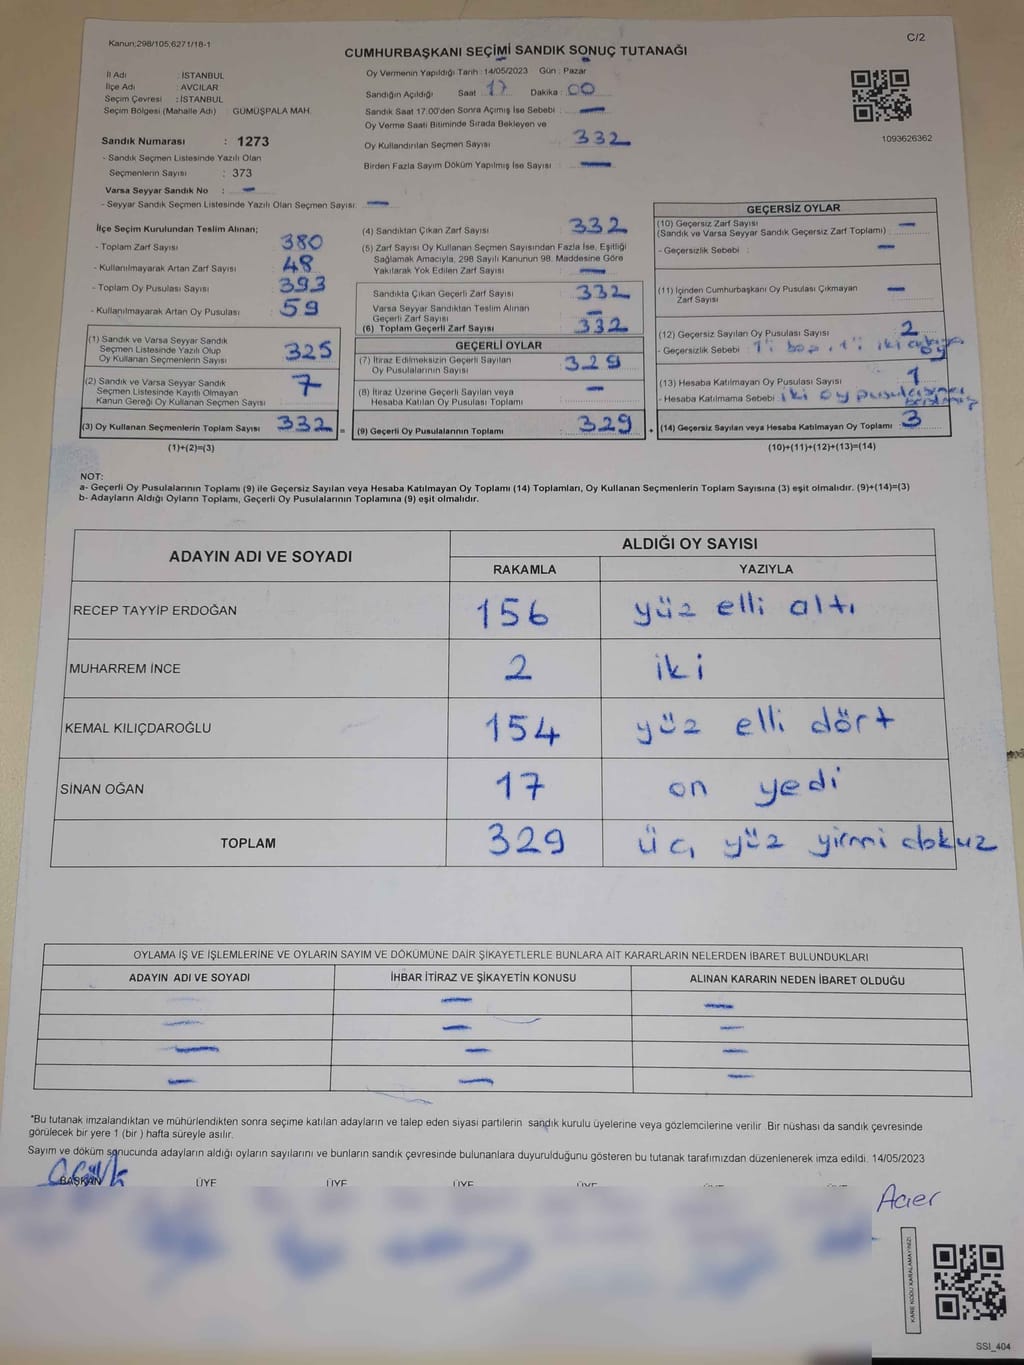 Kanun;298/105;6271/18-1
C/2
CUMHURBAŞKANI SEÇİMİ SANDIK SONUÇ TUTANAĞI
İl Adı : İSTANBUL
İlçe Adı : AVCILAR
Seçim Çevresi : İSTANBUL
Seçim Bölgesi (Mahalle Adı) : GÜMÜŞPALA MAH.
Sandık Numarası : 1273
- Sandık Seçmen Listesinde Yazılı Olan
Seçmenlerin Sayısı : 373
Varsa Seyyar Sandık No : —
- Seyyar Sandık Seçmen Listesinde Yazılı Olan Seçmen Sayısı: —
Oy Vermenin Yapıldığı Tarih : 14/05/2023 Gün : Pazar
Sandığın Açıldığı Saat 17 Dakika : 00
Sandık Saat 17:00'den Sonra Açımış İse Sebebi : —
Oy Verme Saati Bitiminde Sırada Bekleyen ve
Oy Kullandırılan Seçmen Sayısı 332
Birden Fazla Sayım Döküm Yapılmış İse Sayısı : —
1093626362
İlçe Seçim Kurulundan Teslim Alınan;
- Toplam Zarf Sayısı 380
- Kullanılmayarak Artan Zarf Sayısı : 48
- Toplam Oy Pusulası Sayısı : 393
- Kullanılmayarak Artan Oy Pusulası : 59
(1) Sandık ve Varsa Seyyar Sandık
Seçmen Listesinde Yazılı Olup
Oy Kullanan Seçmenlerin Sayısı 325
(2) Sandık ve Varsa Seyyar Sandık
Seçmen Listesinde Kayıtlı Olmayan
Kanun Gereği Oy Kullanan Seçmen Sayısı 7
(3) Oy Kullanan Seçmenlerin Toplam Sayısı : 332 =
(1)+(2)=(3)
(4) Sandıktan Çıkan Zarf Sayısı 332
(5) Zarf Sayısı Oy Kullanan Seçmen Sayısından Fazla İse, Eşitliği
Sağlamak Amacıyla, 298 Sayılı Kanunun 98. Maddesine Göre
Yakılarak Yok Edilen Zarf Sayısı : —
Sandıkta Çıkan Geçerli Zarf Sayısı : 332
Varsa Seyyar Sandıktan Teslim Alınan
Geçerli Zarf Sayısı —
(6) Toplam Geçerli Zarf Sayısı : 332
GEÇERLİ OYLAR
(7) İtiraz Edilmeksizin Geçerli Sayılan
Oy Pusulalarının Sayısı : 329
(8) İtiraz Üzerine Geçerli Sayılan veya
Hesaba Katılan Oy Pusulası Toplamı —
(9) Geçerli Oy Pusulalarının Toplamı : 329 +
GEÇERSİZ OYLAR
(10) Geçersiz Zarf Sayısı
(Sandık ve Varsa Seyyar Sandık Geçersiz Zarf Toplamı) : —
- Geçersizlik Sebebi : —
(11) İçinden Cumhurbaşkanı Oy Pusulası Çıkmayan
Zarf Sayısı —
(12) Geçersiz Sayılan Oy Pusulası Sayısı 2
- Geçersizlik Sebebi : 1'i boş, 1'i iki
oy
(13) Hesaba Katılmayan Oy Pusulası Sayısı 1
- Hesaba Katılmama Sebebi : iki oy
(14) Geçersiz Sayılan veya Hesaba Katılmayan Oy Toplamı : 3
(10)+(11)+(12)+(13)=(14)
NOT:
a- Geçerli Oy Pusulalarının Toplamı (9) ile Geçersiz Sayılan veya Hesaba Katılmayan Oy Toplamı (14) Toplamları, Oy Kullanan Seçmenlerin Toplam Sayısına (3) eşit olmalıdır. (9)+(14)=(3)
b- Adayların Aldığı Oyların Toplamı, Geçerli Oy Pusulalarının Toplamına (9) eşit olmalıdır.
ADAYIN ADI VE SOYADI ALDIĞI OY SAYISI
RAKAMLA YAZIYLA
RECEP TAYYİP ERDOĞAN 156 yüz elli altı
MUHARREM İNCE 2 iki
KEMAL KILIÇDAROĞLU 154 yüz elli dört
SİNAN OĞAN 17 on yedi
TOPLAM 329 üç yüz yirmi dokuz
OYLAMA İŞ VE İŞLEMLERİNE VE OYLARIN SAYIM VE DÖKÜMÜNE DAİR ŞİKAYETLERLE BUNLARA AİT KARARLARIN NELERDEN İBARET BULUNDUKLARI
ADAYIN ADI VE SOYADI İHBAR İTİRAZ VE ŞİKAYETİN KONUSU ALINAN KARARIN NEDEN İBARET OLDUĞU
— — —
— — —
— — —
— — —
*Bu tutanak imzalandıktan ve mühürlendikten sonra seçime katılan adayların ve talep eden siyasi partilerin sandık kurulu üyelerine veya gözlemcilerine verilir. Bir nüshası da sandık çevresinde
görülecek bir yere 1 (bir ) hafta süreyle asılır.
Sayım ve döküm sonucunda adayların aldığı oyların sayılarını ve bunların sandık çevresinde bulunanlara duyurulduğunu gösteren bu tutanak tarafımızdan düzenlenerek imza edildi. 14/05/2023
BAŞKAN ÜYE ÜYE ÜYE ÜYE
KARE KODU KARALAMAYINIZ!
SSI_404